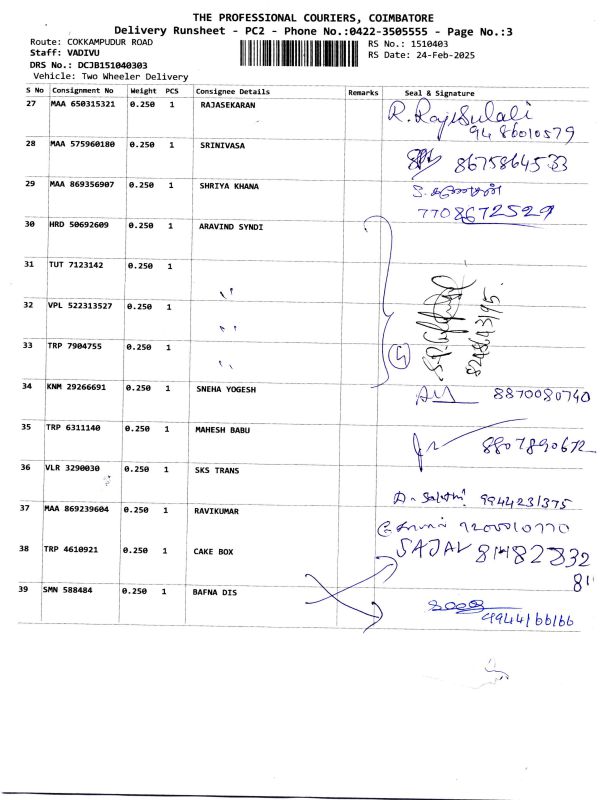 THE PROFESSIONAL COURIERS, COIMBATORE
Delivery Runsheet - PC2 - Phone No.:0422-3505555 - Page No.:3
Route: COKKAMPUDUR ROAD
RS No.: 1510403
Staff: VADIVU
RS Date: 24-Feb-2025
DRS No.: DCJB151040303
Vehicle: Two Wheeler Delivery
S No Consignment No Weight PCS Consignee Details Remarks Seal & Signature
27 MAA 650315321 0.250 1 RAJASEKARAN
9486010579
28 MAA 575960180 0.250 1 SRINIVASA 8675864533
29 MAA 869356907 0.250 1 SHRIYA KHANA
7708672529
30 HRD 50692609 0.250 1 ARAVIND SYNDI
31 TUT 7123142 0.250 1
32 VPL 522313527 0.250 1 "
33 TRP 7904755 0.250 1 "
"
34 KNM 29266691 0.250 1 SNEHA YOGESH 8870080740
35 TRP 6311140 0.250 1 MAHESH BABU 8807890672
36 VLR 3290030 0.250 1 SKS TRANS 9944231375
37 MAA 869239604 0.250 1 RAVIKUMAR
38 TRP 4610921 0.250 1 CAKE BOX
39 SMN 588484 0.250 1 BAFNA DIS
9944166166